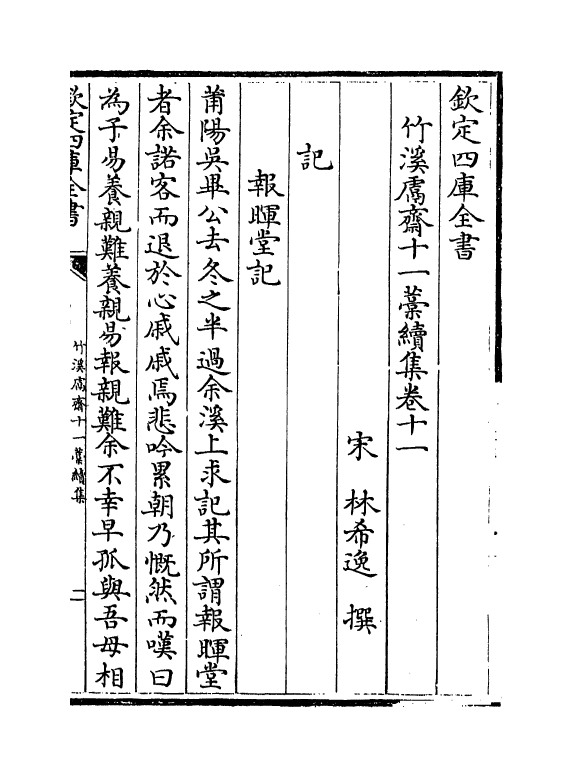 欽定四庫全書
竹溪鬳齋十一藁續集卷十一
宋　林希逸　撰
記
報暉堂記
莆陽吳畢公去冬之半過余溪上求記其所謂報暉堂
者余諾客而退於心戚戚焉悲吟累朝乃慨然而嘆曰
為子易養親難養親易報親難余不幸早孤與吾母相
欽定四庫全書
竹溪鬳齋十一藁續集